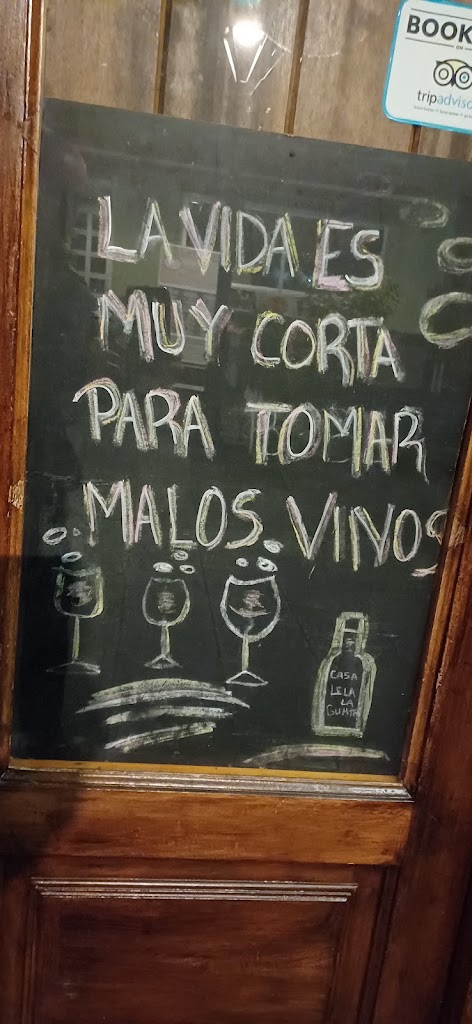 BOOK
ON
tripadviso
LA VIDA ES
MUY CORTA
PARA TOMAR
MALOS VINOS
CASA
LELA
LA